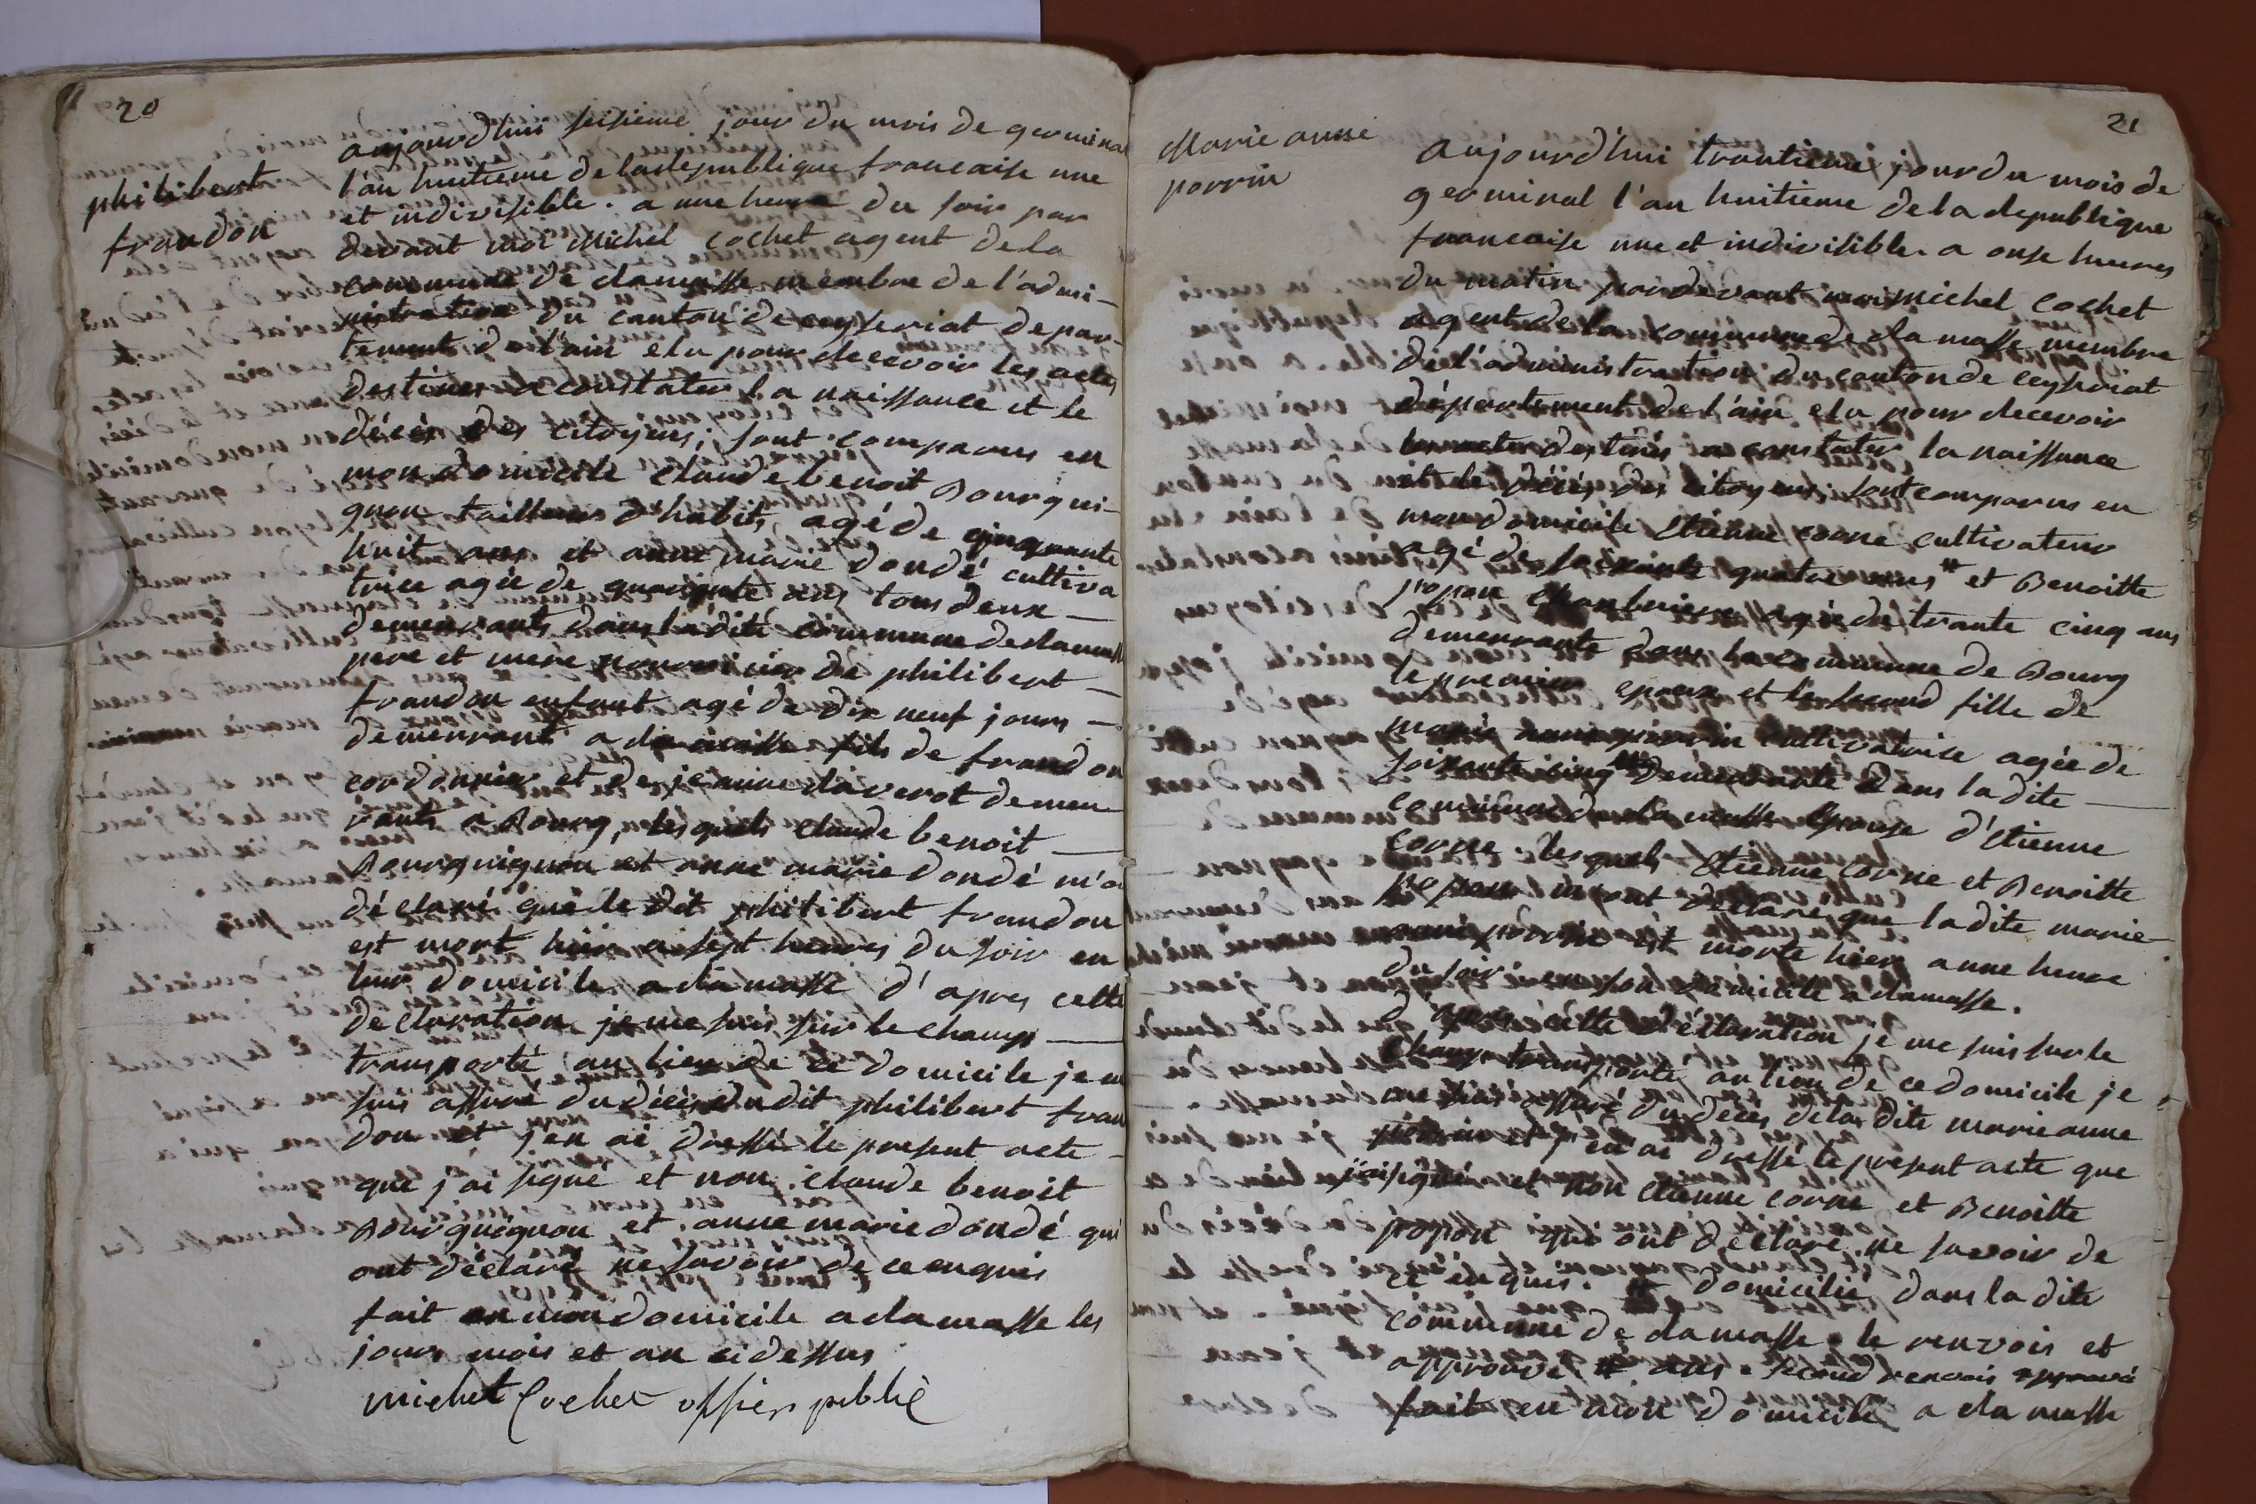 20
philibert
frandon
aujourd'hui seisieme jour du mois de germinal
l'an huitieme de la republique francaise une
et indivisible. a une heure du soir par
devant moi Michel Cochet agent de la
commune de damasse membre de l'admi-
nistration du canton de ceyseriat depar-
tement de l'ain elu pour recevoir les actes
destinés a constater la naissance et le
décès des citoyens; sont comparus en
mon domicile claude benoit Bourgui-
gnon tailleur d'habits, agé de cinquante
huit ans et anne marie dondé cultiva
trice agée de quarante ans tous deux
demeurants dans la dite commune de damasse
pere et mere nourricier de philibert
frandon enfant agé de dix neuf jours
demeurant a damasse fils de frandon
cordonnier et de jeanne claverot demeu
rants a Bourg, les quels claude benoit
Bourguignon et anne marie dondé m'on
déclaré que le dit philibert frandon
est mort hier a sept heures du soir en
leur domicile a damasse d'apres cette
declaration je me suis sur le champ
transporté au lieu de ce domicile je me
suis assuré du décès du dit philibert fran
don et j'en ai dressé le present acte
que j'ai signé et non claude benoit
Bourguignon et anne marie dondé qui
ont déclaré ne savoir de ce enquis
fait en mon domicile a damasse les
jour mois et an cidessus
michel Cochet offier publié
21
Marie anne
perrin
aujourd'hui trantieme jour du mois de
germinal l'an huitieme de la republique
francaise une et indivisible. a onse heures
du matin pardevant moi Michel Cochet
agent de la commune de damasse membre
de l'administration du canton de ceyseriat
département de l'ain elu pour recevoir
les actes destinés a constater la naissance
et le décès des citoyens sont comparus en
mon domicile Etienne corne cultivateur
agé de soixante quatre ans # et Benoitte
popon chamberiere agée de trante cinq ans
demeurante dans la commune de Bourg
le premier epoux et le second fille de
marie anne perrin cultivatrice agée de
soixante cinq demeurante dans la dite
commune de damasse Epouse d'Etienne
corne. les quels Etienne corne et Benoitte
popon m'ont déclaré que la dite marie
anne perrin est morte hier a une heure
du soir en son domicile a damasse.
d'apres cette déclaration je me suis sur le
champ transporté au lieu de ce domicile je
me suis assuré du décès de la dite marie anne
perrin et j'en ai dressé le present acte que
j'ai signé et non Etienne corne et Benoitte
popon qui ont déclaré ne savoir de
ce enquis. # domicilié dans la dite
commune de damasse. le renvois et
approuvé # ans. second renvois approuvé
fait en mon domicile a damasse